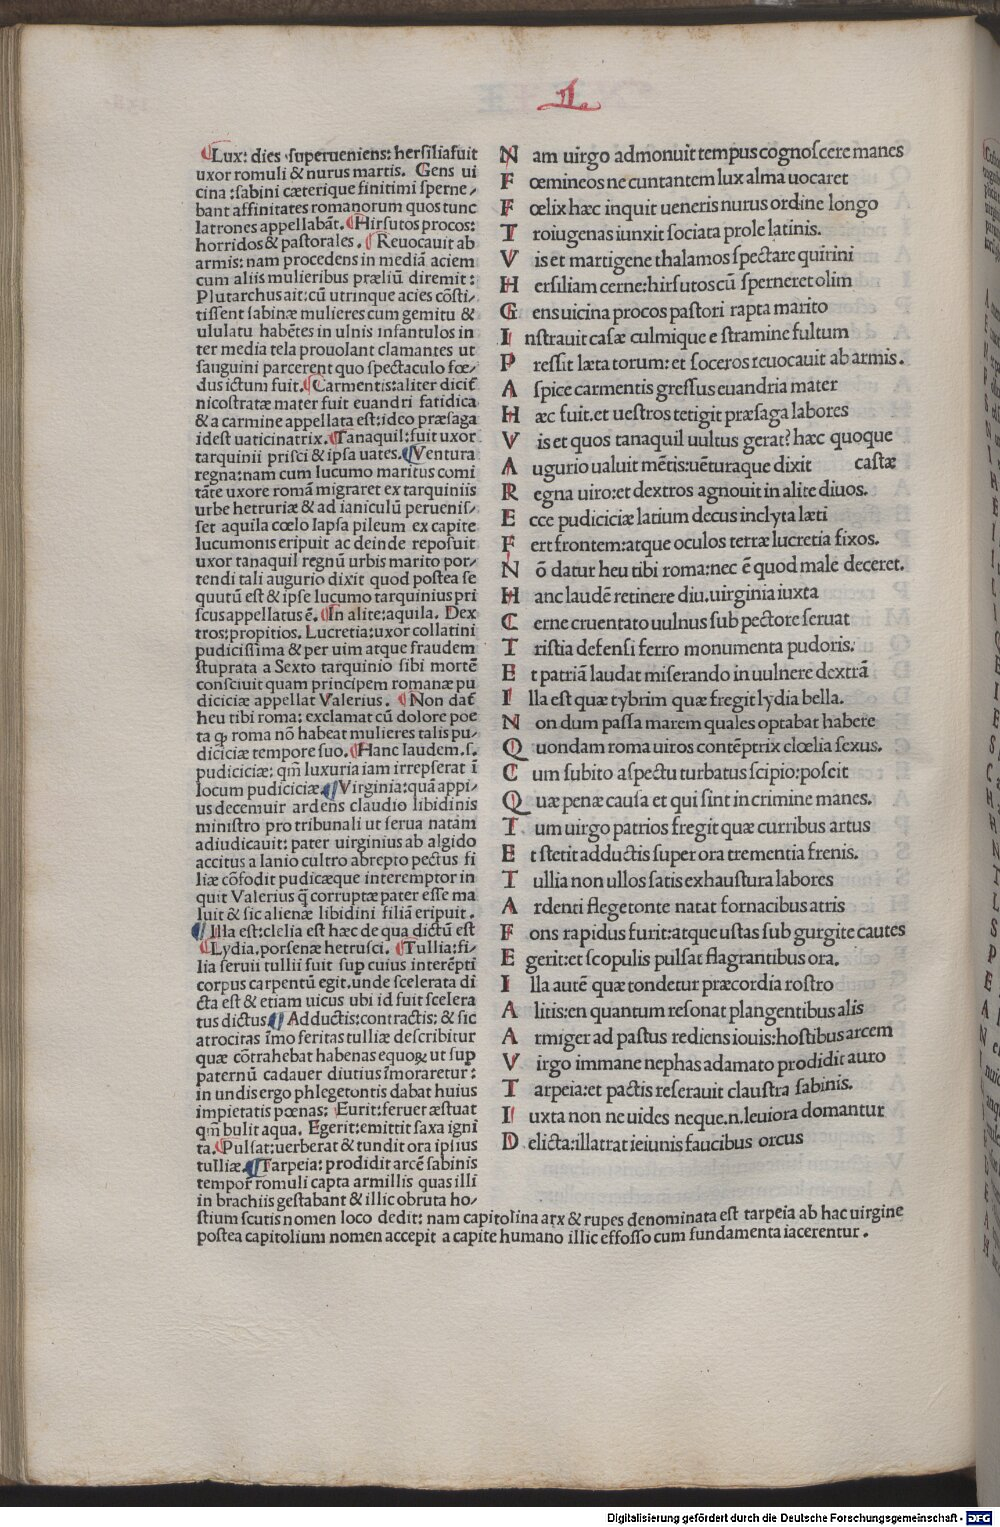 ¶Lux: dies superueniens: hersilia fuit
uxor romuli & nurus martis. Gens ui
cina: sabini cæterique finitimi sperne/
bant affinitates romanorum quos tunc
latrones appellabāt. ¶Hirsutos procos:
horridos & pastorales. ¶Reuocauit ab
armis: nam procedens in mediā aciem
cum aliis mulieribus præliū diremit:
Plutarchus ait: cū utrinque acies cōsti/
tissent sabinæ mulieres cum gemitu &
ululatu habētes in ulnis infantulos in
ter media tela prouolant clamantes ut
sanguini parcerent quo spectaculo fœ/
dus ictum fuit. ¶Carmentis: aliter dicit̄
nicostratæ mater fuit euandri fatidica
& a carmine appellata est: ideo præsaga
idest uaticinatrix. ¶Tanaquil: fuit uxor
tarquinii prisci & ipsa uates. ¶Ventura
regna: nam cum lucumo maritus comi
tāte uxore romā migraret ex tarquiniis
urbe hetruriæ & ad ianiculū peruenis/
set aquila cœlo lapsa pileum ex capite
lucumonis eripuit ac deinde reposuit
uxor tanaquil regnū urbis marito por/
tendi tali augurio dixit quod postea se
quutū est & ipse lucumo tarquinius pri
scus appellatus ē. ¶In alite: aquila. Dex
tros: propitios. Lucretia: uxor collatini
pudicissima & per uim atque fraudem
stuprata a Sexto tarquinio sibi mortē
consciuit quam principem romanæ pu
diciciæ appellat Valerius. ¶Non dat̄
heu tibi roma: exclamat cū dolore poe
ta ꝙ roma nō habeat mulieres talis pu/
diciciæ tempore suo. ¶Hanc laudem. s.
pudiciciæ: qm̄ luxuria iam irrepserat ī
locum pudiciciæ ¶Virginia: quā appi/
us decemuir ardens claudio libidinis
ministro pro tribunali ut serua natam
adiudicauit: pater uirginius ab algido
accitus a lanio cultro abrepto pectus fi
liæ cōfodit pudicæque interemptor in
quit Valerius q̄ corruptæ pater esse ma
luit & sic alienæ libidini filiā eripuit.
¶Illa est: clelia est hæc de qua dictū est
¶Lydia. porsenæ hetrusci. ¶Tullia: fi/
lia seruii tullii fuit sup̱ cuius interēpti
corpus carpentū egit. unde scelerata di
cta est & etiam uicus ubi id fuit scelera
tus dictus ¶Adductis: contractis: & sic
atrocitas īmo feritas tulliæ describitur
quæ cōtrahebat habenas equoꝝ ut sup̱
paternū cadauer diutius īmoraretur:
in undis ergo phlegetontis dabat huius
impietatis pœnas: Eurit: feruet æstuat
qm̄ bulit aqua. Egerit: emittit saxa igni
ta. ¶Pulsat: uerberat & tundit ora ipsius
tulliæ. ¶Tarpeia: prodidit arcē sabinis
tempor̄ romuli capta armillis quas illi
in brachiis gestabant & illic obruta ho/
stium scutis nomen loco dedit: nam capitolina arx & rupes denominata est tarpeia ab hac uirgine
postea capitolium nomen accepit a capite humano illic effosso cum fundamenta iacerentur.
N am uirgo admonuit tempus cognoscere manes
F œmineos ne cuntantem lux alma uocaret
F œlix hæc inquit ueneris nurus ordine longo
T roiugenas iunxit sociata prole latinis.
V is et martigene thalamos spectare quirini
H ersiliam cerne: hirsutos cū sperneret olim
G ens uicina procos pastori rapta marito
I nstrauit casæ culmique e stramine fultum
P ressit læta torum: et soceros reuocauit ab armis.
A spice carmentis gressus euandria mater
H æc fuit. et uestros tetigit præsaga labores
V is et quos tanaquil uultus gerat? hæc quoque
A ugurio ualuit mētis: uēturaque dixit castæ
R egna uiro: et dextros agnouit in alite diuos.
E cce pudiciciæ latium decus inclyta læti
F ert frontem: atque oculos terræ lucretia fixos.
N ō datur heu tibi roma: nec ē quod male deceret.
H anc laudē retinere diu. uirginia iuxta
C erne cruentato uulnus sub pectore seruat
T ristia defensi ferro monumenta pudoris:
E t patriā laudat miserando in uulnere dextrā
I lla est quæ tybrim quæ fregit lydia bella.
N on dum passa marem quales optabat habere
Q uondam roma uiros contēptrix clœlia sexus.
C um subito aspectu turbatus scipio: poscit
Q uæ penæ causa et qui sint in crimine manes.
T um uirgo patrios fregit quæ curribus artus
E t stetit adductis super ora trementia frenis.
T ullia non ullos satis exhaustura labores
A rdenti flegetonte natat fornacibus atris
F ons rapidus furit: atque ustas sub gurgite cautes
E gerit: et scopulis pulsat flagrantibus ora.
I lla autē quæ tondetur præcordia rostro
A litis: en quantum resonat plangentibus alis
A rmiger ad pastus rediens iouis: hostibus arcem
V irgo immane nephas adamato prodidit auro
T arpeia: et pactis reserauit claustra sabinis.
I uxta non ne uides neque. n. leuiora domantur
D elicta: illatrat ieiunis faucibus orcus
Digitalisierung gefördert durch die Deutsche Forschungsgemeinschaft - DFG